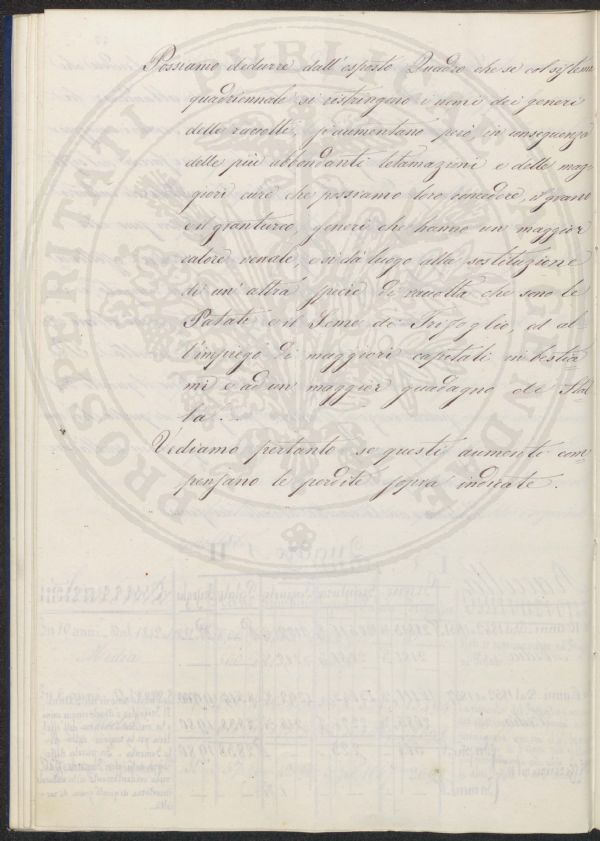 Possiamo dedurre dall'esposto Quadro che se col sistema
quadriennale si restringono i nomi dei generi
delle raccolte, s'aumentano però in conseguenza
delle più abbondanti letamazioni e delle mag-
giori cure che possiamo loro concedere, il grano
e il granturco, generi che hanno un maggior
valore venale, e si dà luogo alla sostituzione
di un'altra specie di raccolta che sono le
Patate e il Seme di Trifoglio, ed al
l'impiego di maggiori capitali in bestia=
mi e ad un maggior guadagno di Stal=
la. —
Vediamo pertanto se questi aumenti com=
pensano le perdite sopra indicate.
PROSPERITATI PUBLICAE AUGENDAE